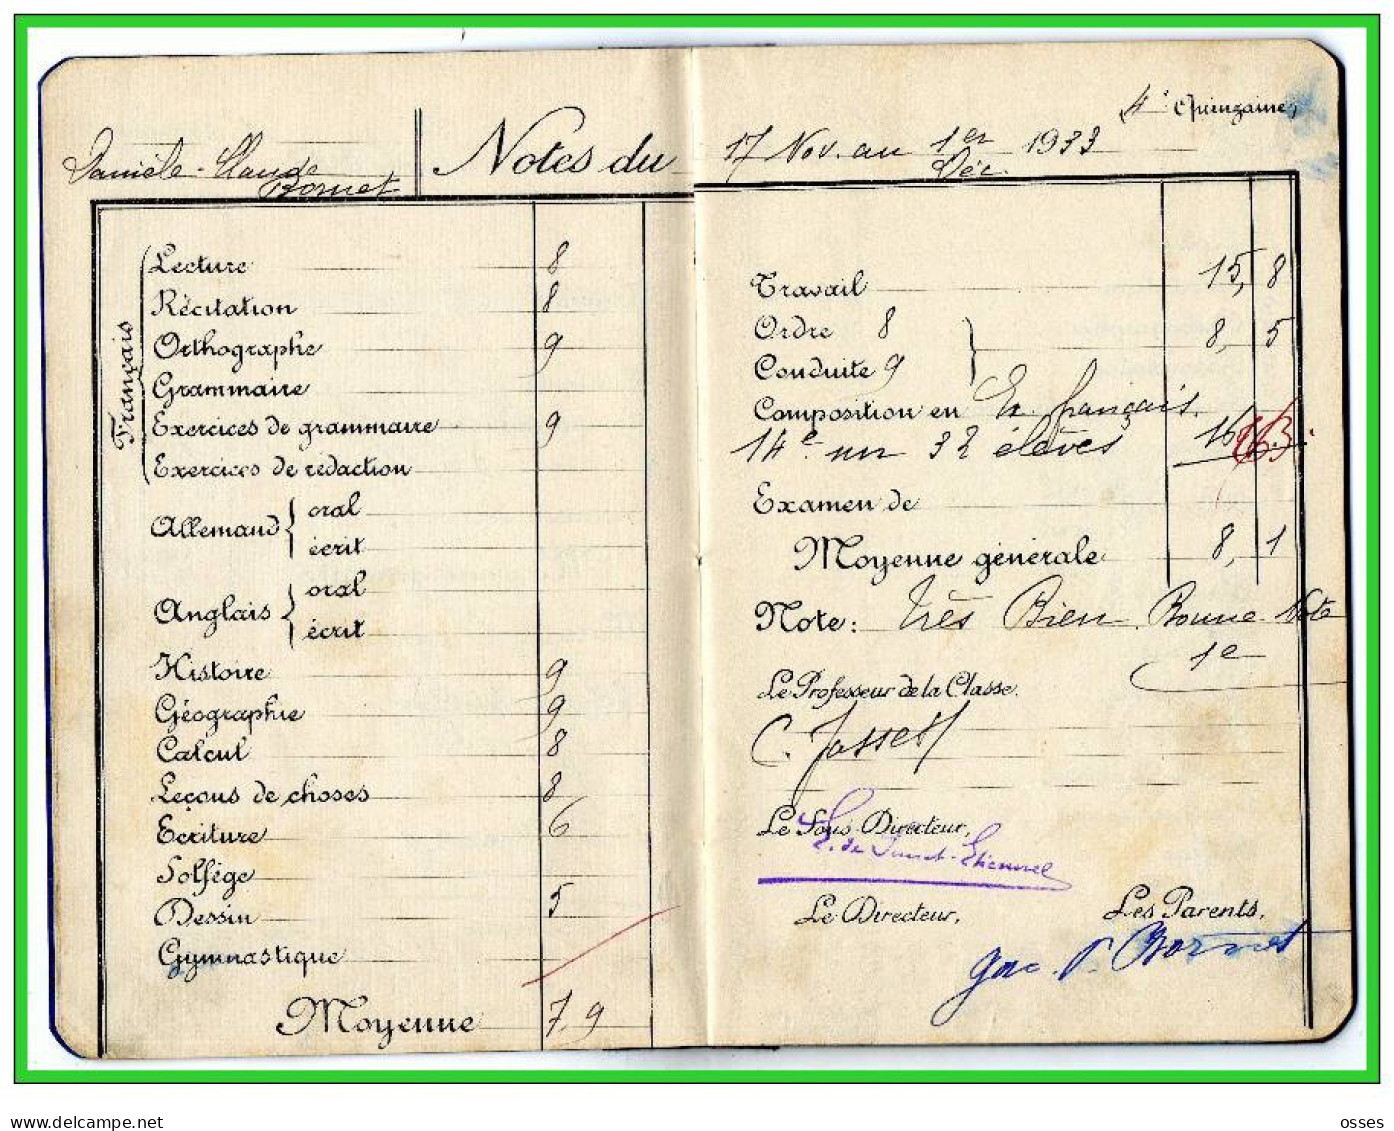 4e Quinzaine
Danièle-Claude Bornet
Notes du 17 Nov. au 1er Déc. 1933
Français
Lecture 8
Récitation 8
Orthographe 9
Grammaire
Exercices de grammaire 9
Exercices de rédaction
Allemand { oral
écrit
Anglais { oral
écrit
Histoire 9
Géographie 9
Calcul 8
Leçons de choses 8
Ecriture 6
Solfège
Dessin 5
Gymnastique
Moyenne 7,9
Travail 15, 8
Ordre 8 } 8, 5
Conduite 9
Composition en français.
14e sur 32 élèves 16
Examen de
Moyenne générale 8, 1
Note: Très Bien. Bonne Note
1e
Le Professeur de la Classe.
Le Sous-Directeur,
Le Directeur, Les Parents,
Bornet
www.delcampe.net
osses